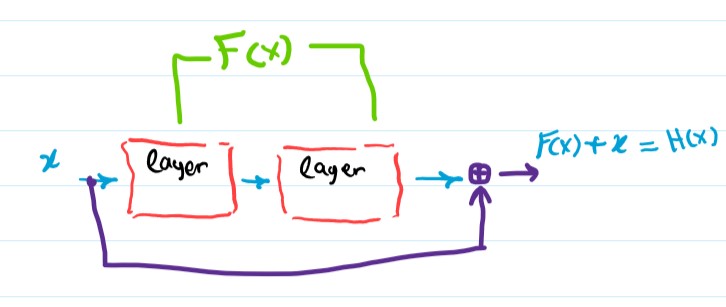 F(x)
x
layer
layer
F(x) + x = H(x)